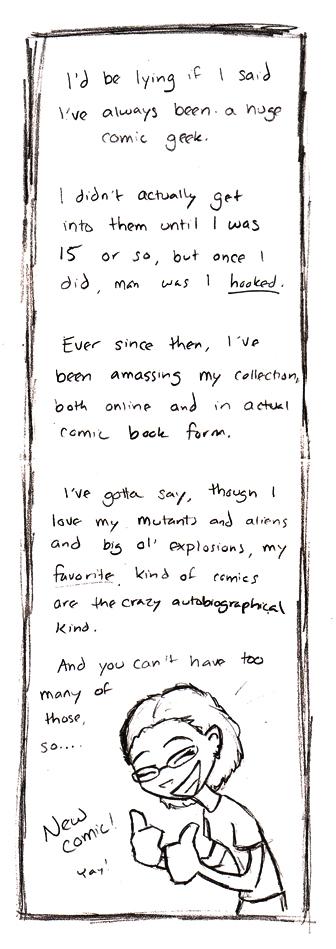 I'd be lying if I said
I've always been a huge
comic geek.
I didn't actually get
into them until I was
15 or so, but once I
did, man was I hooked.
Ever since then, I've
been amassing my collection,
both online and in actual
comic book form.
I've gotta say, though I
love my mutants and aliens
and big ol' explosions, my
favorite kind of comics
are the crazy autobiographical
kind.
And you can't have too
many of
those,
so....
New
comic!
Yay!